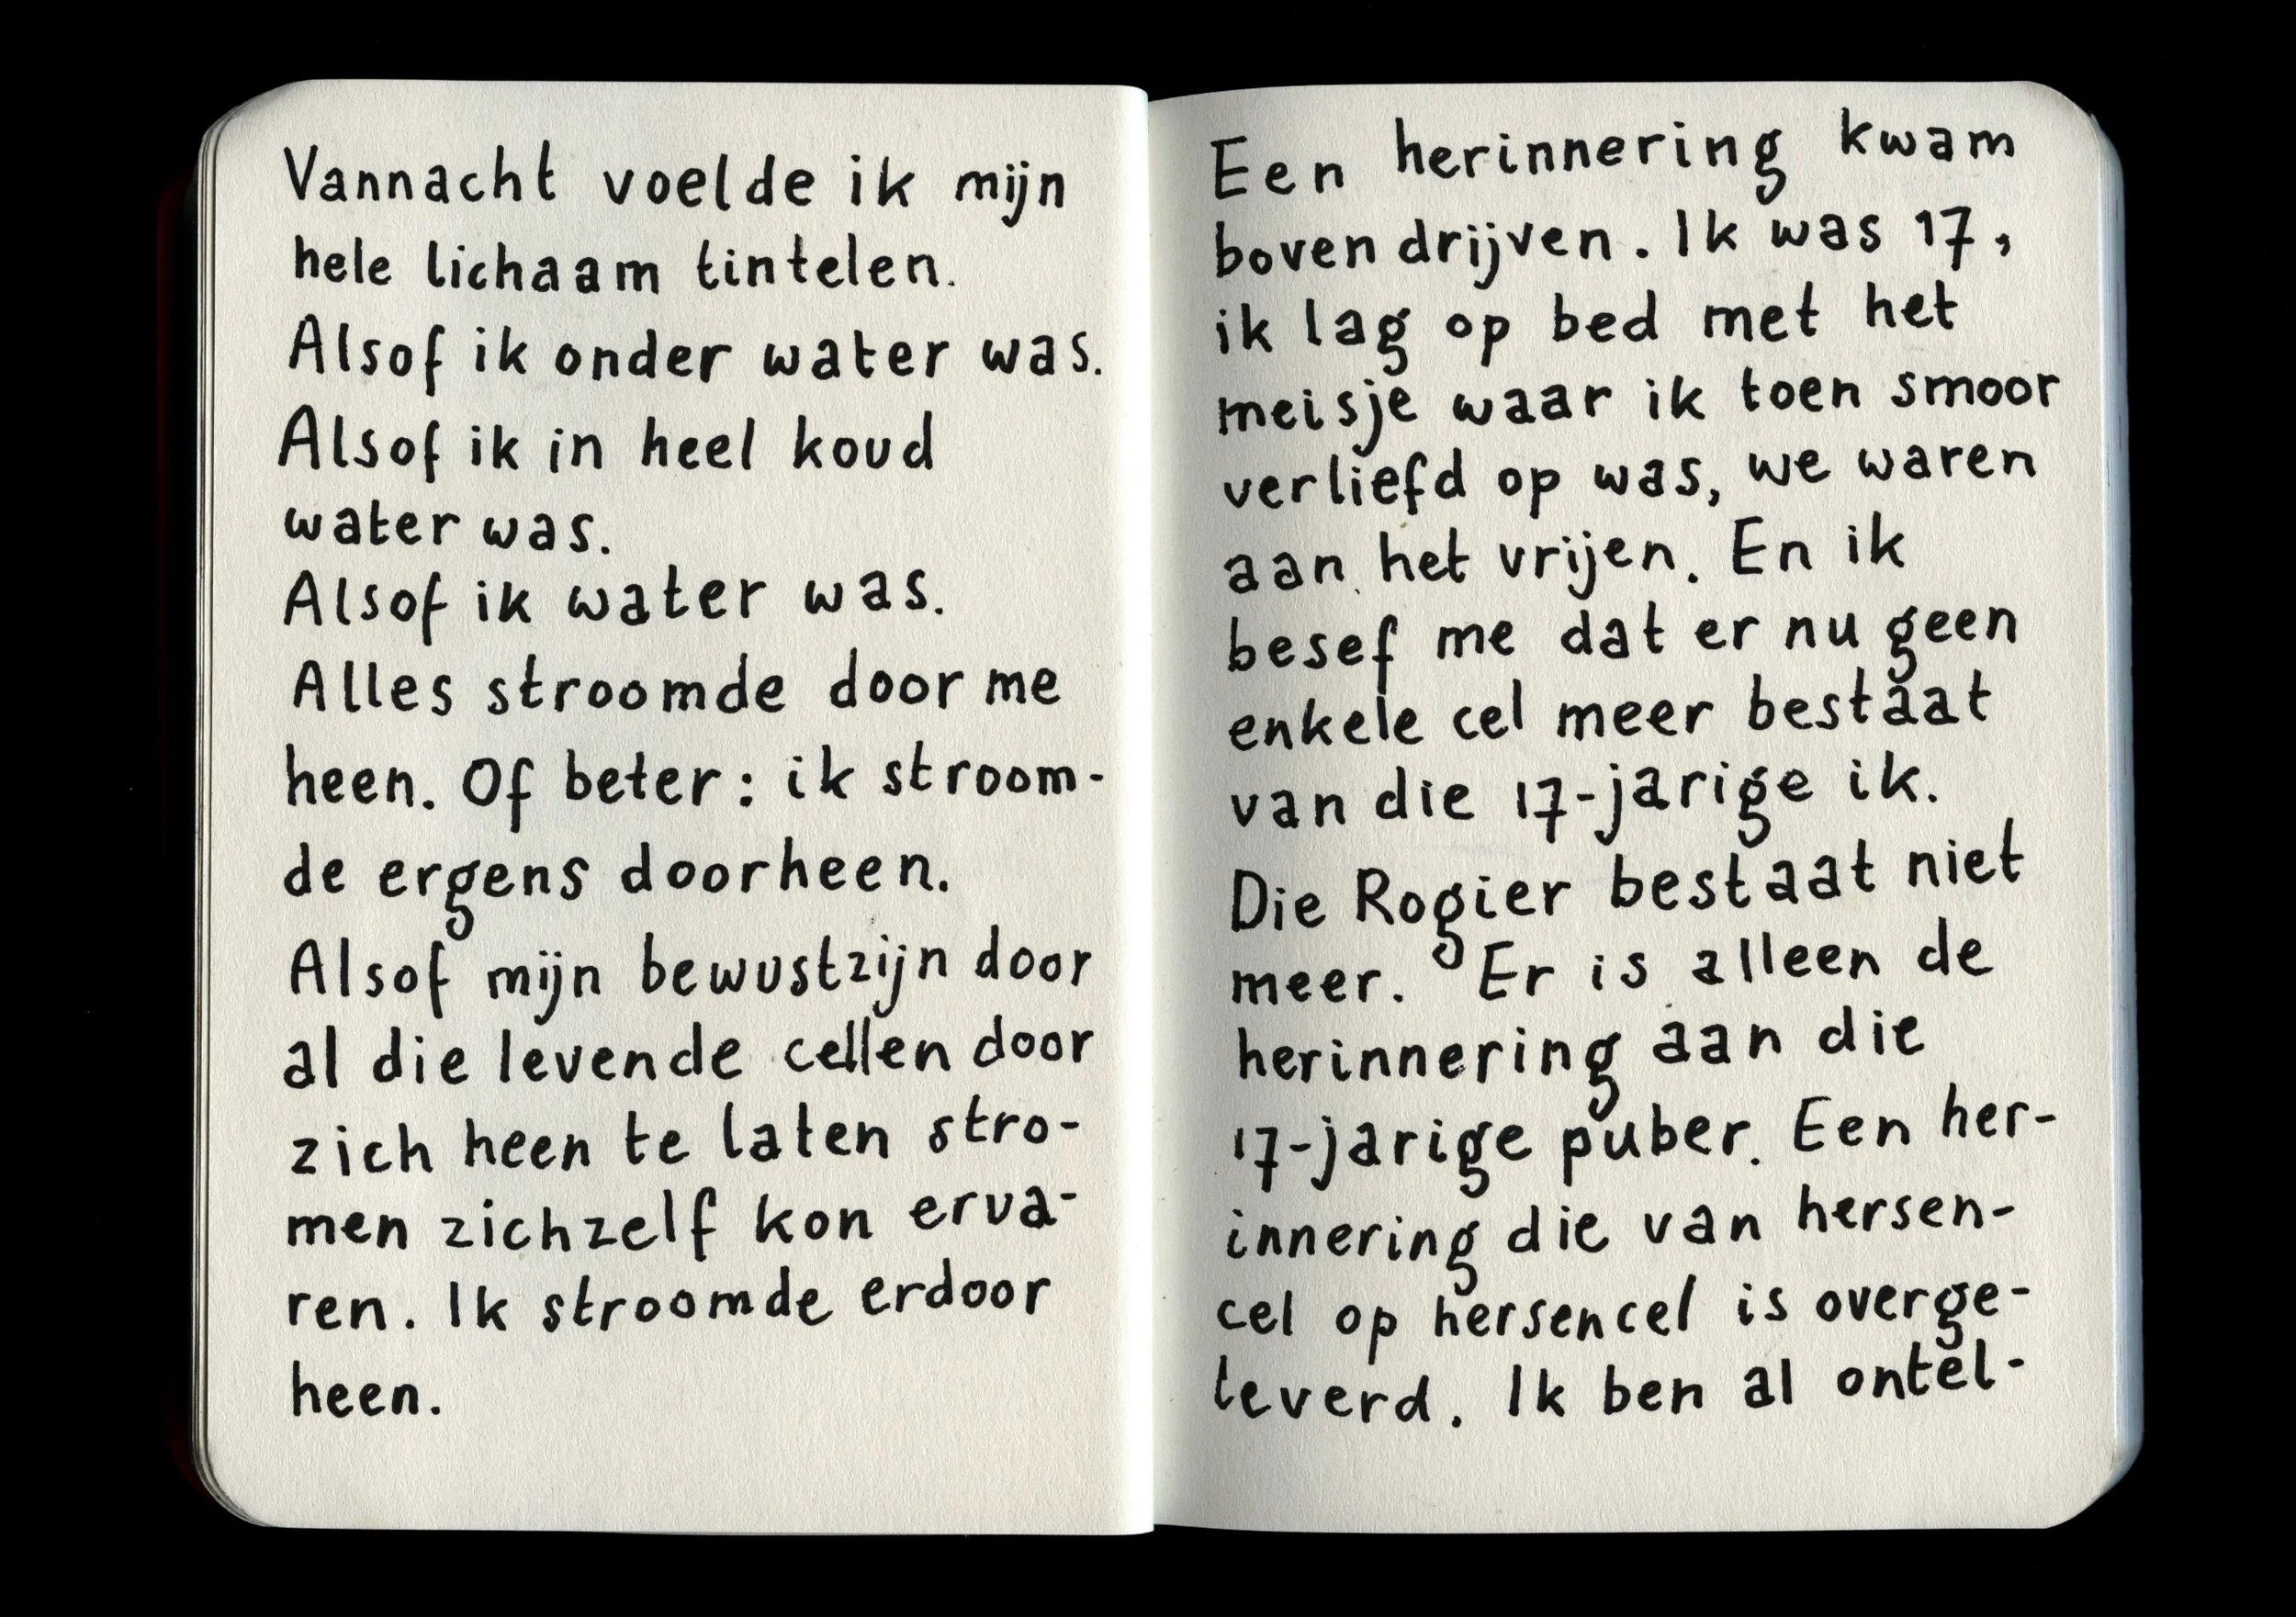 Vannacht voelde ik mijn
hele lichaam tintelen.
Alsof ik onder water was.
Alsof ik in heel koud
water was.
Alsof ik water was.
Alles stroomde door me
heen. Of beter: ik stroom-
de ergens doorheen.
Alsof mijn bewustzijn door
al die levende cellen door
zich heen te laten stro-
men zichzelf kon erva-
ren. Ik stroomde erdoor
heen.
Een herinnering kwam
boven drijven. Ik was 17,
ik lag op bed met het
meisje waar ik toen smoor
verliefd op was, we waren
aan het vrijen. En ik
besef me dat er nu geen
enkele cel meer bestaat
van die 17-jarige ik.
Die Rogier bestaat niet
meer. Er is alleen de
herinnering aan die
17-jarige puber. Een her-
innering die van hersen-
cel op hersencel is overge-
leverd. Ik ben al ontel-